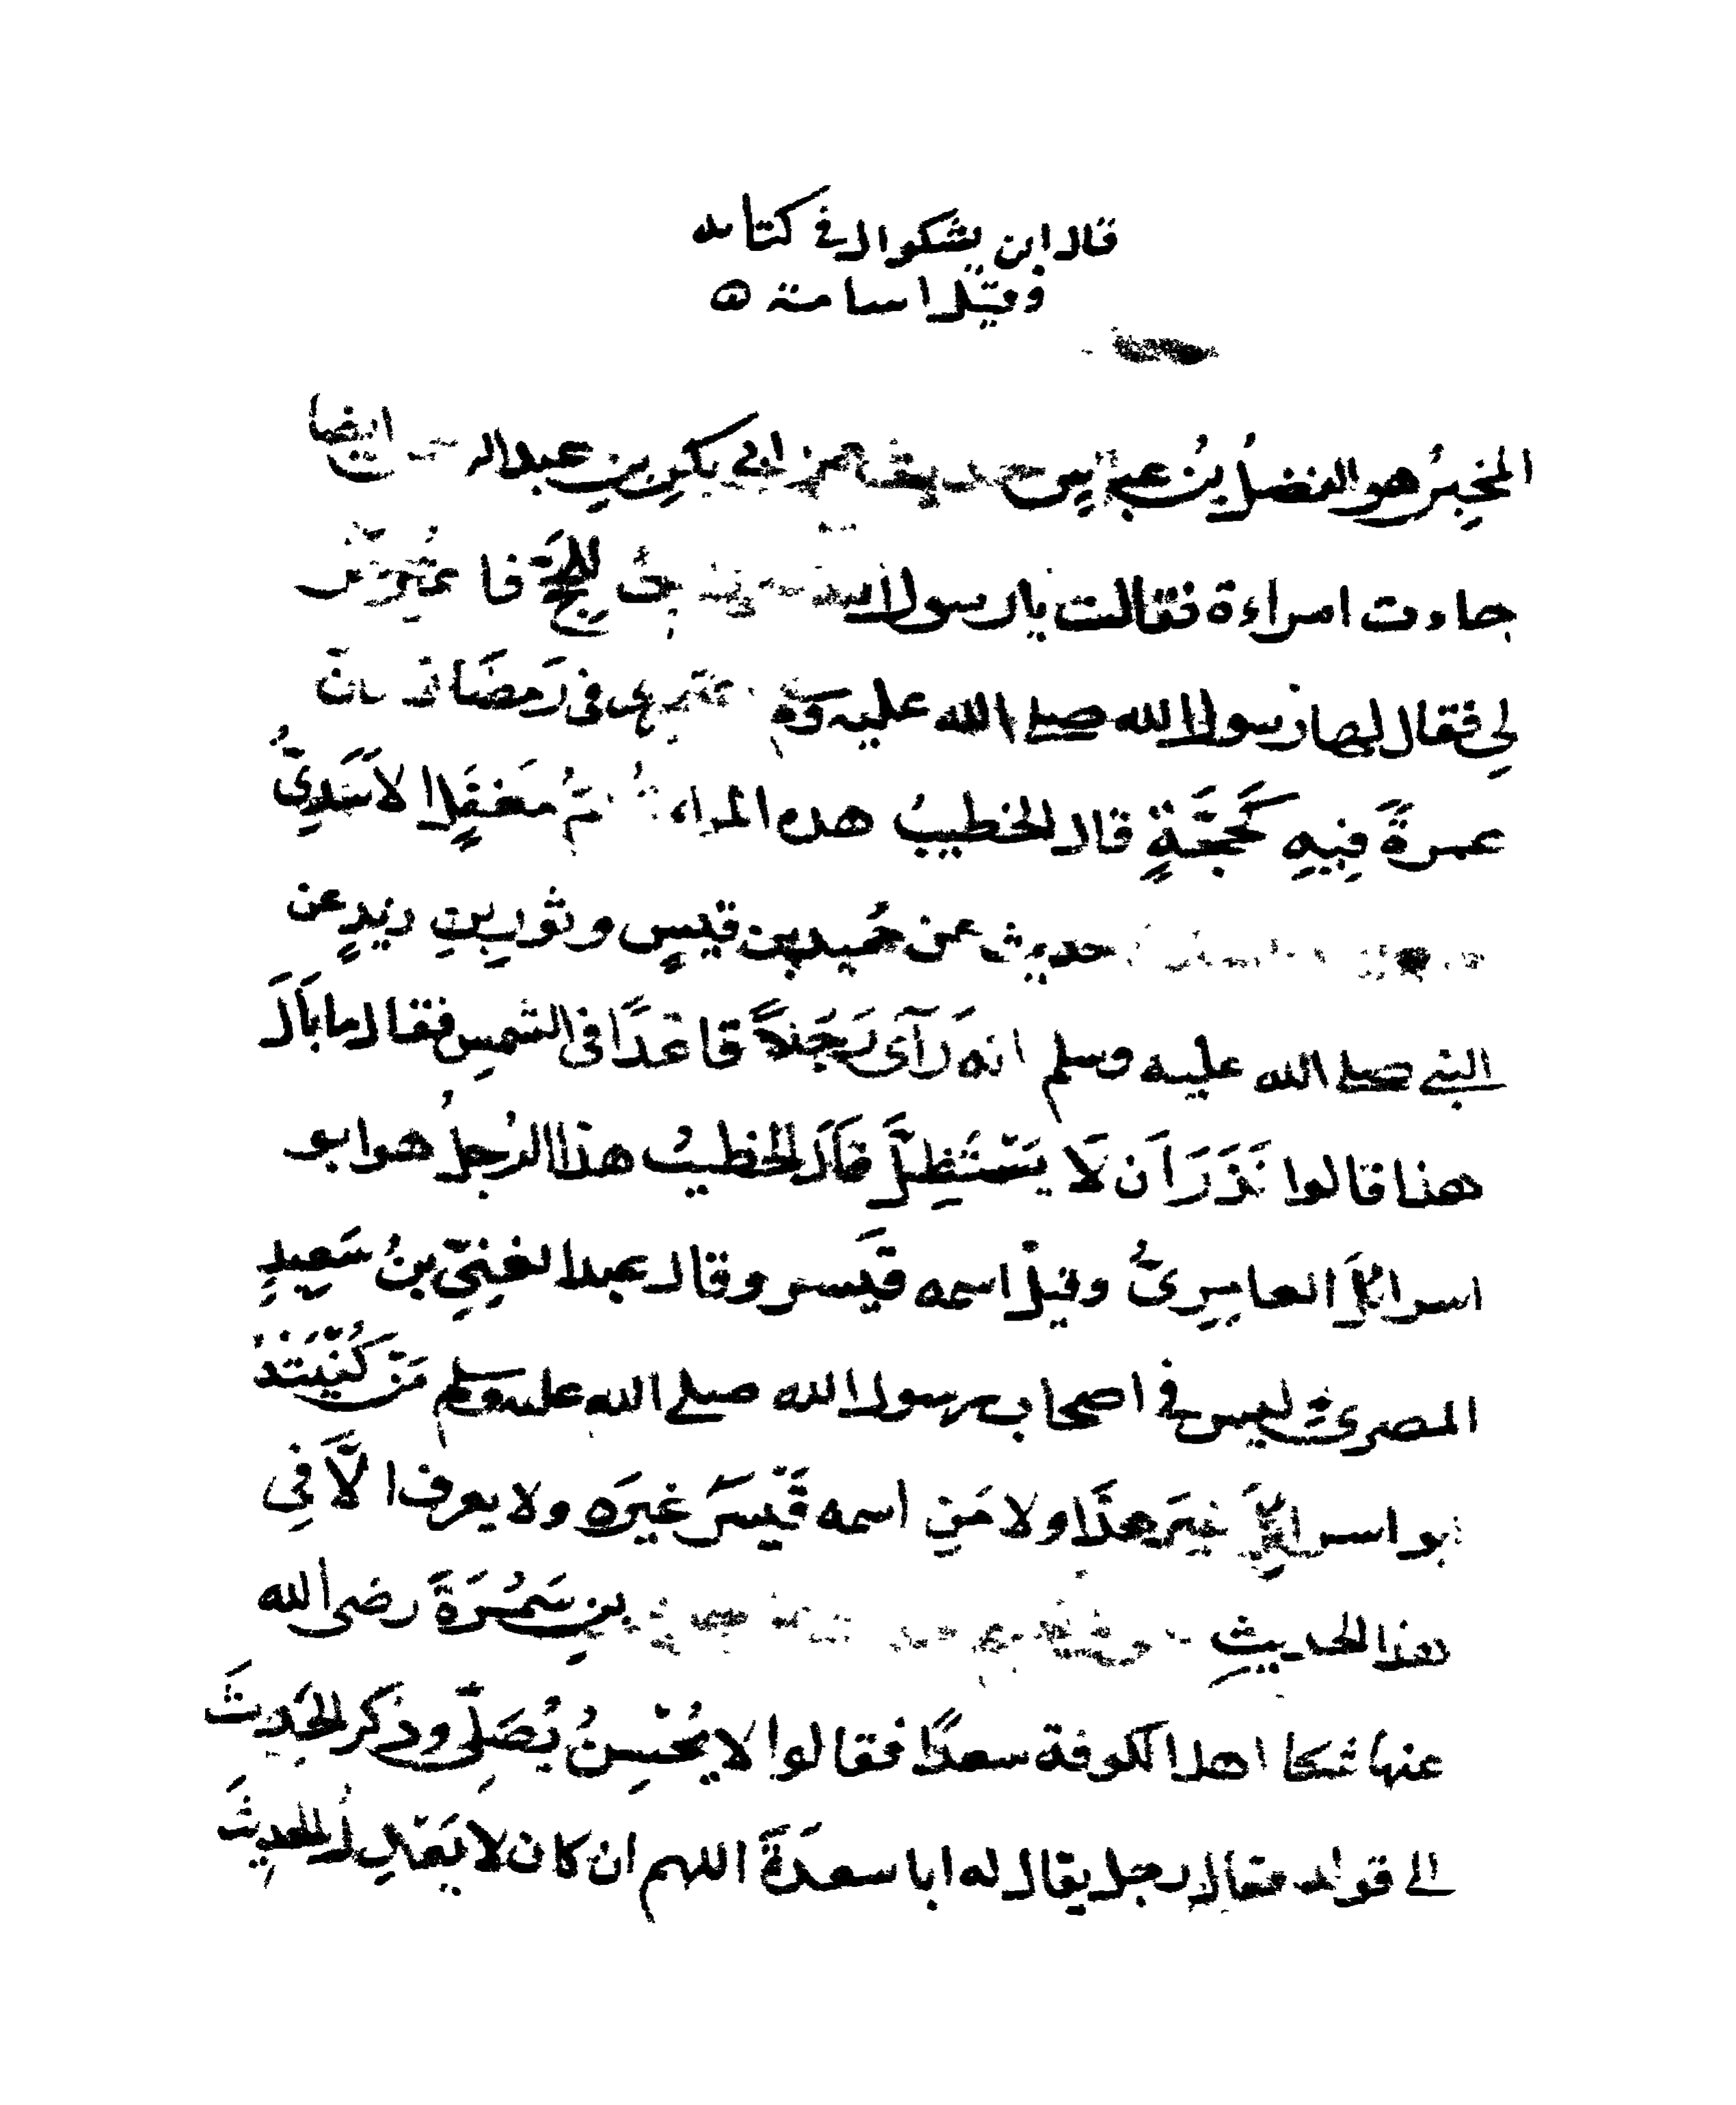 قال ابن بشكوال في كتابه
وقيل اسامة ه
المخبرُ هو الفضلُ بنُ عباسٍ حديث عن ابي بكرِ بنِ عبد الر ايضا
جاءت امراءة فقالت يا رسول الله للحَجِّ فاعتُرِضَ
لِي فقال لها رسول الله صلى الله عليه وسلم اعتمري في رَمضَان فان
عمرةً فِيهِ كَحَجَّةٍ قال الخطيبُ هذه المراءة أمُّ مَعْقِلٍ الاَسَدِيَّةُ
حديث عن حُميد بن قيسٍ وثورِ بنِ زيدٍ عن
النبي صلى الله عليه وسلم انه رَآى رَجُلاً قاعدًا في الشمسِ فقال ما بَالَ
هذا قالوا نَذَرَ اَن لَا يَسْتَظِلَّ قاَلَ الخطيبُ هذا الرجلُ هو ابو
اسرائلَ العامِرىُّ وقيلَ اسمه قَيسر وقال عبد الغنِيِّ بنُ سَعِيدٍ
المصرىُّ ليس في اصحاب رسول الله صلى الله عليه وسلم مَنْ كُنْيَتُهُ
ابو اسرائلَ غيرَ هذَا ولا مَنِ اسمه قَيْسَرَ غيرَه ولا يعرف الَّا فِي
هذا الحديثِ بنِ سَمُرَةَ رضى الله
عنهما شكا اهل الكوفة سعدًا فقالوا لا يُحْسِنُ يُصَلِّي وذكر الحَدِيثَ
الى قوله فقال رجل يقال له ابا سعدَةَ اللهم ان كان لا يَعْدِلُ الحديثَ